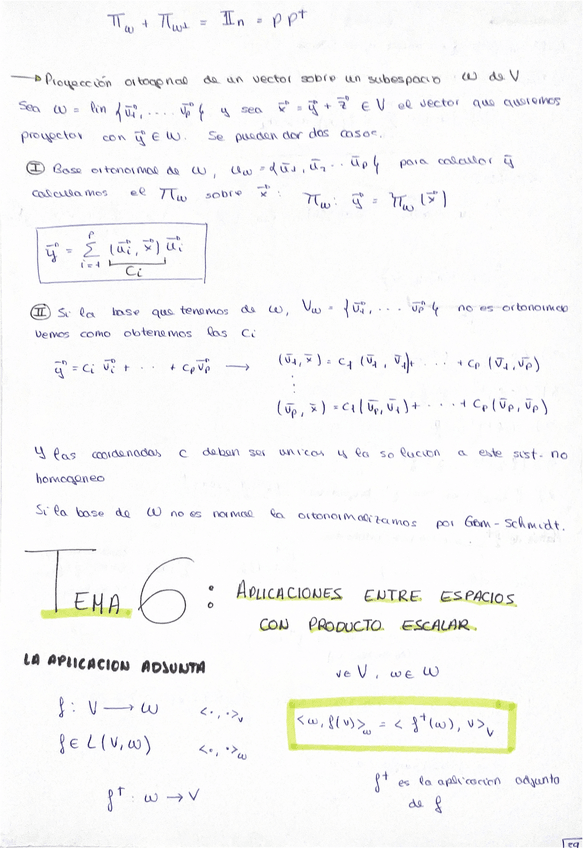 Π_ω + Π_ω⊥ = 𝕀n = PP†
→ Proyección ortogonal de un vector sobre un subespacio ω de V
Sea ω = lin {v̄₁, .... v̄p} y sea x̄ = ȳ + z̄ ∈ V el vector que queremos
proyector con ȳ ∈ ω. Se pueden dar dos casos.
Ⓘ Base ortonormal de ω, uω = {ū₁, ū₂ .. ūp} para calcular ȳ
calculamos el Πω sobre x̄: Πω: ȳ = Πω (x̄)
ȳ = Σ_{i=1}^{p} (ūi, x̄) ūi
Ci
Ⓘ︎Ⓘ︎ Si la base que tenemos de ω, Vω = {v̄₁, ... v̄p} no es ortonormal
vemos como obtenemos las Ci
ȳ = Ci v̄i + ... + Cp v̄p → (v̄₁, x̄) = C₁ (v̄₁, v̄₁) + ... + Cp (v̄₁, v̄p)
⋮
(v̄p, x̄) = C₁ (v̄p, v̄₁) + ... + Cp (v̄p, v̄p)
Y las coordenadas C deben ser unicas y la solucion a este sist. no
homogeneo
Si la base de ω no es normal la ortonormalizamos por Gram-Schmidt.
TEMA 6: APLICACIONES ENTRE ESPACIOS
CON PRODUCTO ESCALAR.
LA APLICACION ADJUNTA
v∈V, ω∈W
f: V → ω <·,·>v
f ∈ L(V,ω) <·,·>ω
<ω, f(v)>ω = < f†(ω), v>V
f†: ω → V
f† es la aplicación adjunta
de f